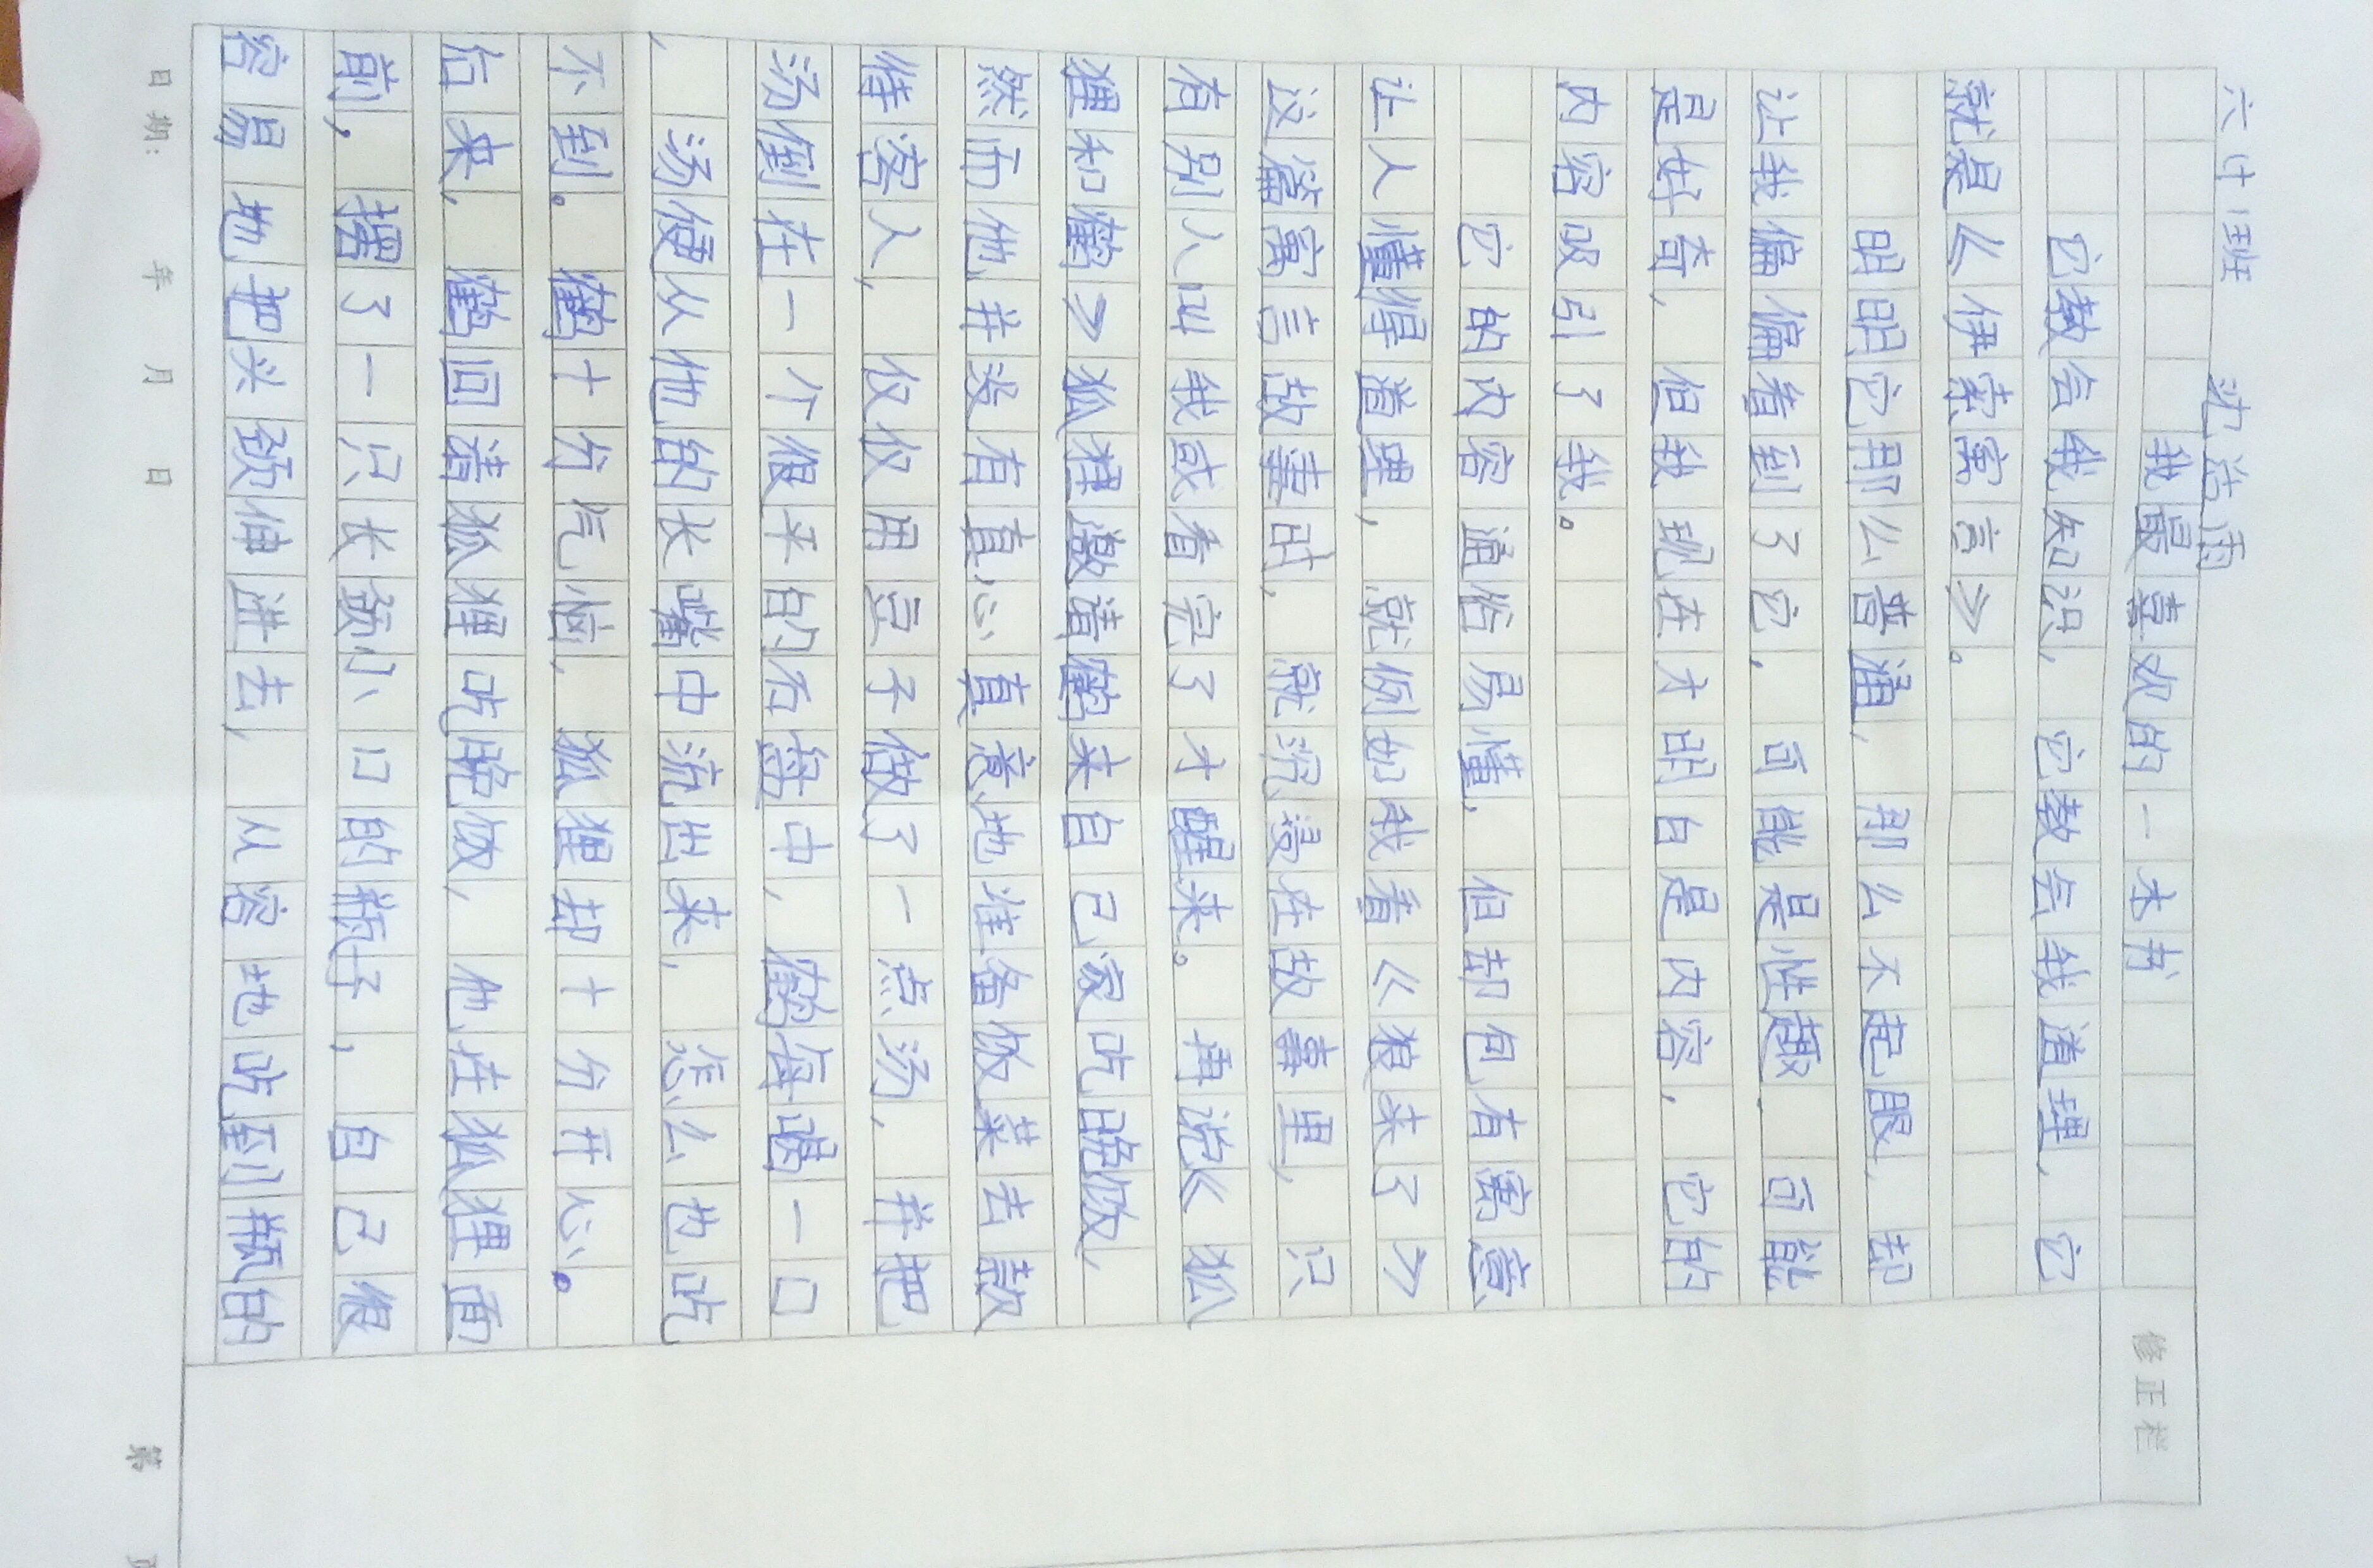 六计班 沈浩雨
我最喜欢的一本书
它教会我知识，它教会我道理，它
就是《伊索寓言》。
明明它那么普通，那么不起眼，却
让我偏偏看到了它，可能是性趣，可能
是好奇，但我现在才明白是内容，它的
内容吸引了我。
它的内容通俗易懂，但却包有寓意
让人懂得道理，就例如我看《狼来了》
这篇寓言故事时，就沉浸在故事里，只
有别人叫我或看完了才醒来。再说《狐
狸和鹤》狐狸邀请鹤来自己家吃晚饭，
然而他并没有真心真意地准备饭菜去款
待客人，仅仅用豆子做了一点汤，并把
汤倒在一个很平的石盘中，鹤每喝一口
，汤便从他的长嘴中流出来，怎么也吃
不到。鹤十分气恼，狐狸却十分开心。
后来，鹤回请狐狸吃晚饭，他在狐狸面
前，摆了一只长颈小口的瓶子，自己很
容易地把头颈伸进去，从容地吃到瓶的
修正栏
日期： 年 月 日
第 页